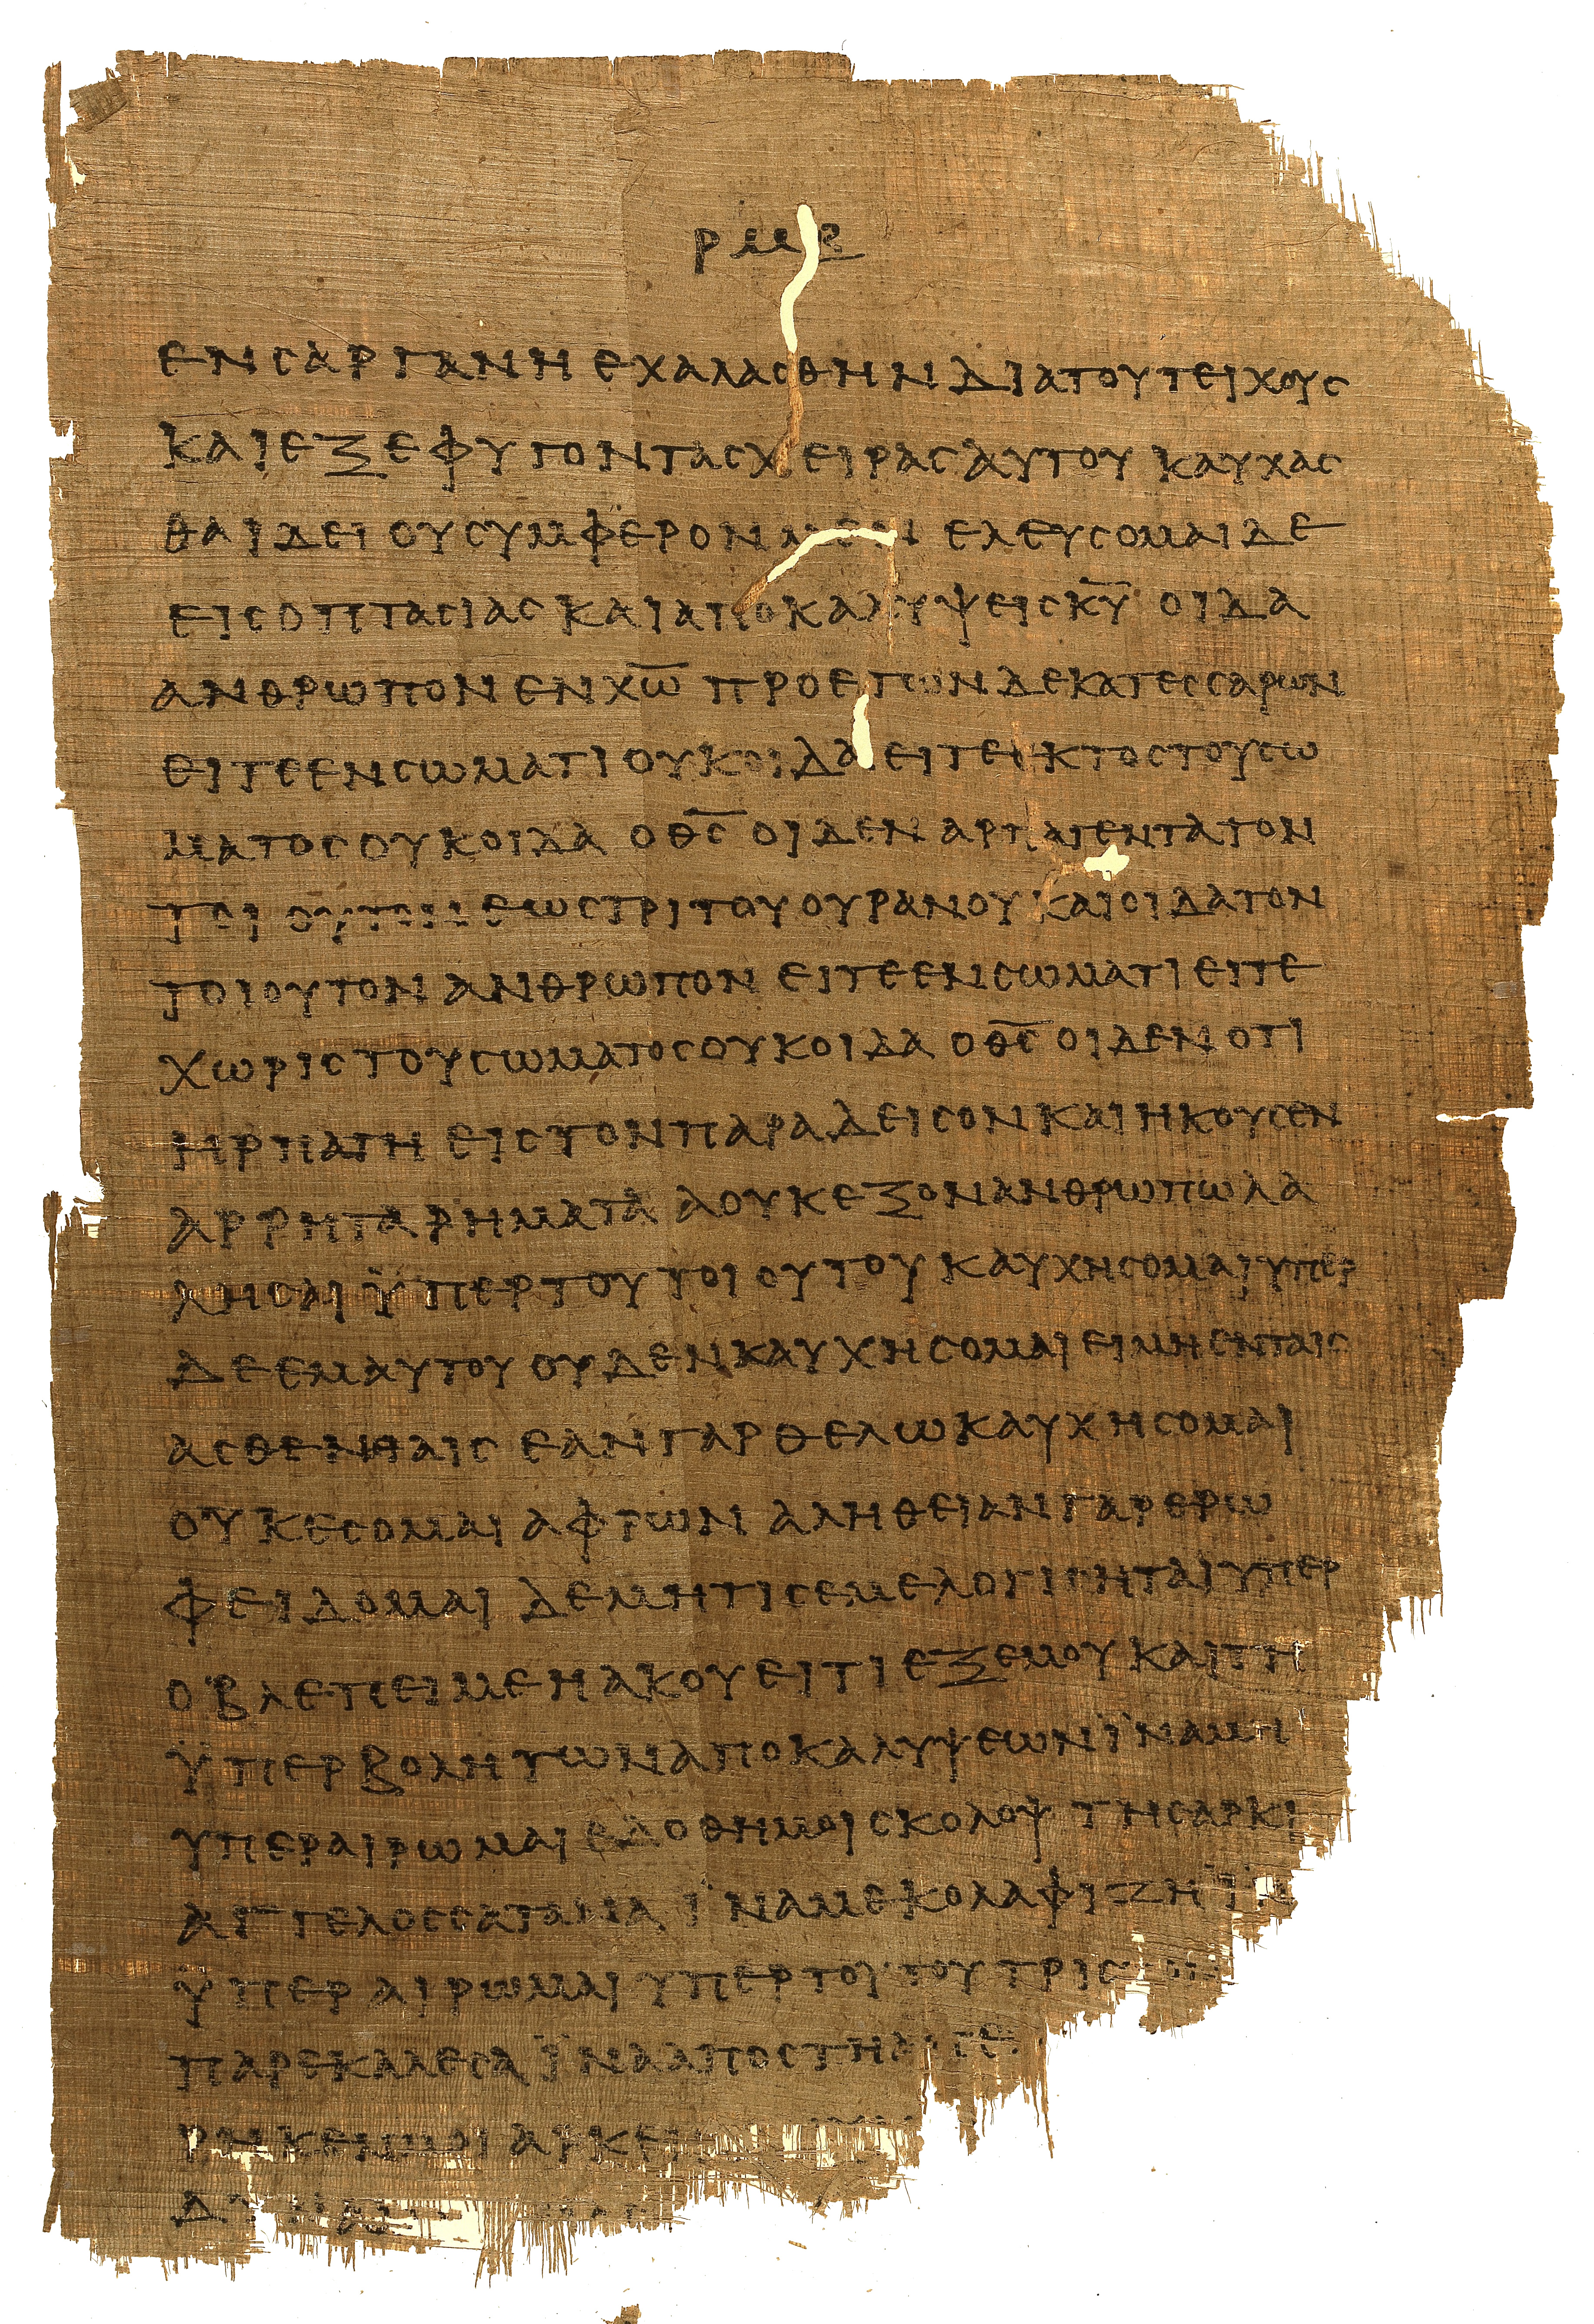 ρμβ
ενσαργανηεχαλασθηνδιατουτειχους
καιεξεφυγοντασχειρασαυτου καυχασ
θαιδει ουσυμφερονμεν ελευσομαιδε
εισοπτασιασκαιαποκαλυψεισκ̅υ̅ οιδα
ανθρωπονενχ̅ω̅ προετωνδεκατεσσαρων
ειτεενσωματιουκοιδαειτεεκτοστουσω
ματοσουκοιδα οθ̅σ̅ οιδεναρπαγεντατον
τοιουτονεωστριτουουρανουκαιοιδατον
τοιουτονανθρωπον ειτεενσωματιειτε
χωριστουσωματοσουκοιδα οθ̅σ̅οιδενοτι
ηρπαγη εισ τονπαραδεισονκαιηκουσεν
αρρηταρηματα αουκεξονανθρωπωλα
λησαιϋπερτουτοιουτου καυχησομαιυπερ
δεεμαυτουουδενκαυχησομαιειμηενταισ
ασθενειαισ εανγαρθελωκαυχησομαι
ουκεσομαι αφρων αληθειανγαρερω
φειδομαι δεμητισεμελογισηταιυπερ
οβλεπειμεηακουειτιεξεμουκαιτη
ϋπερβολητωναποκαλυψεωνϊναμη
υπεραιρωμαιεδοθημοισκολοψ τησαρκι
αγγελοσσατανα ϊναμεκολαφιζηϊν
ϋπεραιρωμαιυπερτουτουτρισ
παρεκαλεσαϊνααποστη
ρηκενμοιαρκει
δυναμ